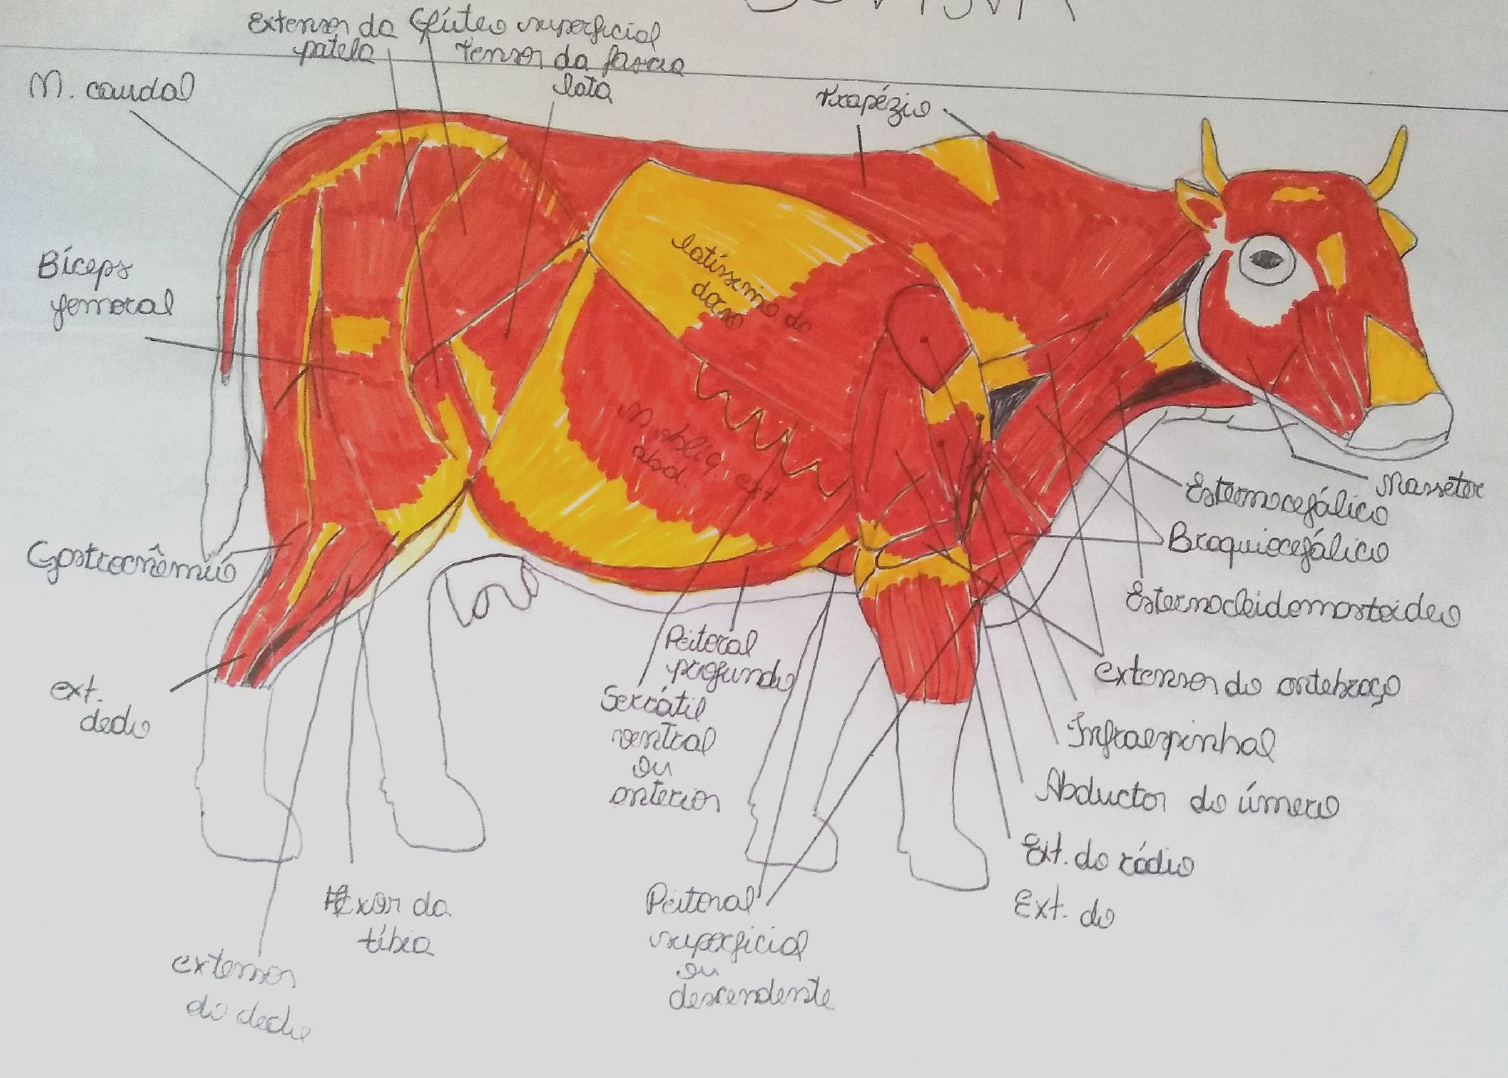 Extensor da Glúteo superficial
patela Tensor da fascia
lata
M. caudal
Trapézio
Bíceps
femoral
latíssimo do
dorso
M. obliq. ext
abd.
Masseter
Esternocefálico
Braquiocefálico
Gastrocnêmio
Esternocleidomastoideo
Peitoral
profundo
extensor do antebraço
ext.
dedo
Serrátil
ventral
ou
anterior
Infraespinhal
Abductor do úmero
Ext. do rádio
Ext. do
Flexor da
tíbia
Peitoral
superficial
ou
descendente
extensor
do dedo